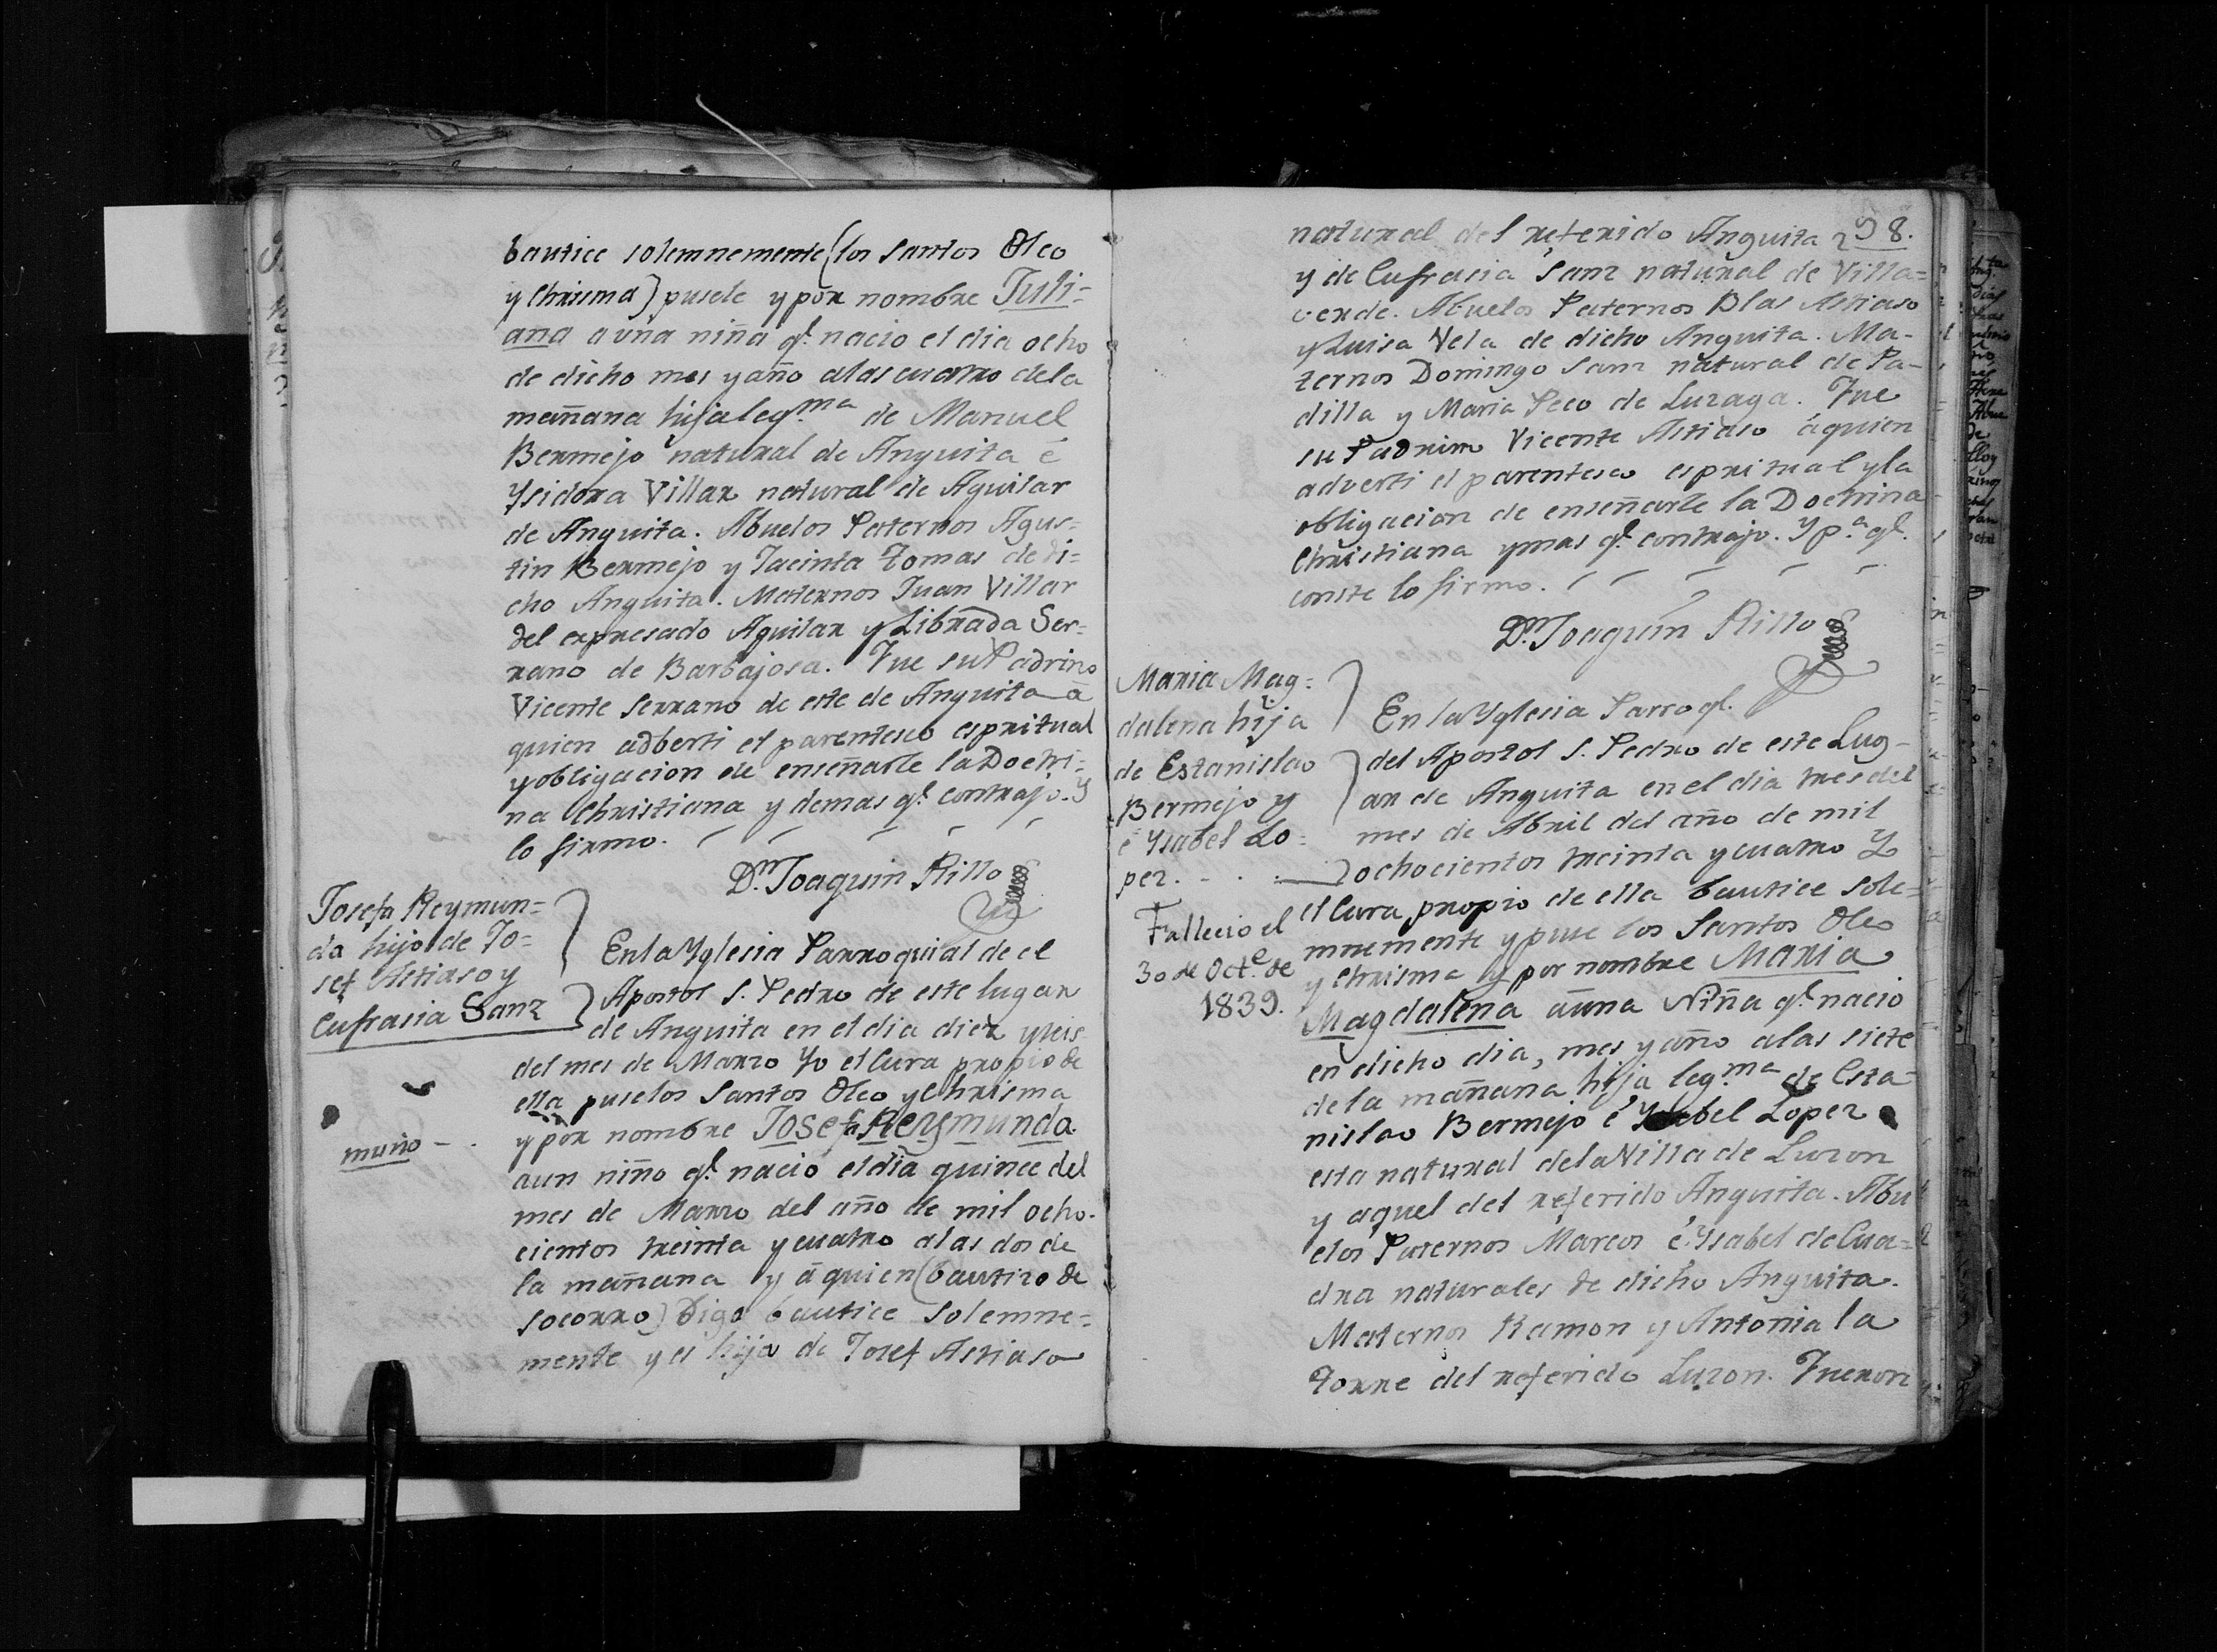 bautice solemnemente (los santos Oleo
y Chrisma) pusele y por nombre Juli=
ana a vna niña q.e nacio el dia ocho
de dicho mes y año a las cuatro de la
mañana hija leg.ma de Manuel
Bermejo natural de Anguita é
Ysidora Villar natural de Aguilar
de Anguita. Abuelos Paternos Agus=
tin Bermejo y Jacinta Tomas de di=
cho Anguita. Maternos Juan Villar
del expresado Aguilar y Librada Ser=
rano de Barbajosa. Fue su Padrino
Vicente Serrano de este de Anguita á
quien adberti el parentesco espritual
y obligacion de enseñarle la Doctri=
na Christiana y demas q.e contrajo. Y
lo firmo.
D.n Joaquin Rillo
Josefa Reymun=
da hijo de Jo=
sef Astiaso y
Eufrasia Sanz
murio - .
En la Yglesia Parroquial de el
Apostol S. Pedro de este lugar
de Anguita en el dia diez y seis
del mes de Marzo Yo el Cura propio de
ella puse los Santos Oleo y Chrisma
y por nombre Josefa Reymunda
a un niño q.e nacio el dia quince del
mes de Marzo del año de mil ocho-
cientos treinta y cuatro a las dos de
la mañana y á quien (bautizo de
socorro) Digo bautice Solemne=
mente y es hija de Josef Astiaso
natural del referido Anguita 98.
y de Eufrasia Sanz natural de Villa=
verde. Abuelos Paternos Blas Astiaso
y Luisa Vela de dicho Anguita. Ma-
ternos Domingo Sanz natural de Pa-
dilla y Maria Peco de Luzaga. Fue
su Padrino Vicente Astiaso á quien
adverti el parentesco espritual y la
obligacion de enseñarle la Doctrina
Christiana y mas q.e contrajo. Y p.a q.e
conste lo firmo.
D.n Joaquin Rillo
Maria Mag=
dalena hija
de Estanislao
Bermejo y
é Ysabel Lo=
pez.
Fallecio el
30 de Oct.e de
1839.
En la Yglesia Parroq.l
del Apostol S. Pedro de este Lug-
ar de Anguita en el dia tres del
mes de Abril del año de mil
ochocientos treinta y cuatro Yo
el Cura propio de ella bautice sole=
mnemente y puse los Santos Oleo
y Chrisma y por nombre Maria
Magdalena á una Niña q.e nacio
en dicho dia, mes y año a las siete
de la mañana hija leg.ma de Esta-
nislao Bermejo é Ysabel Lopez
esta natural de la Villa de Luzon
y aquel del referido Anguita. Abu
elos Paternos Marcos é Ysabel de Cua=
dra naturales de dicho Anguita.
Maternos Ramon y Antonia la
Torre del referido Luzon. Fueron